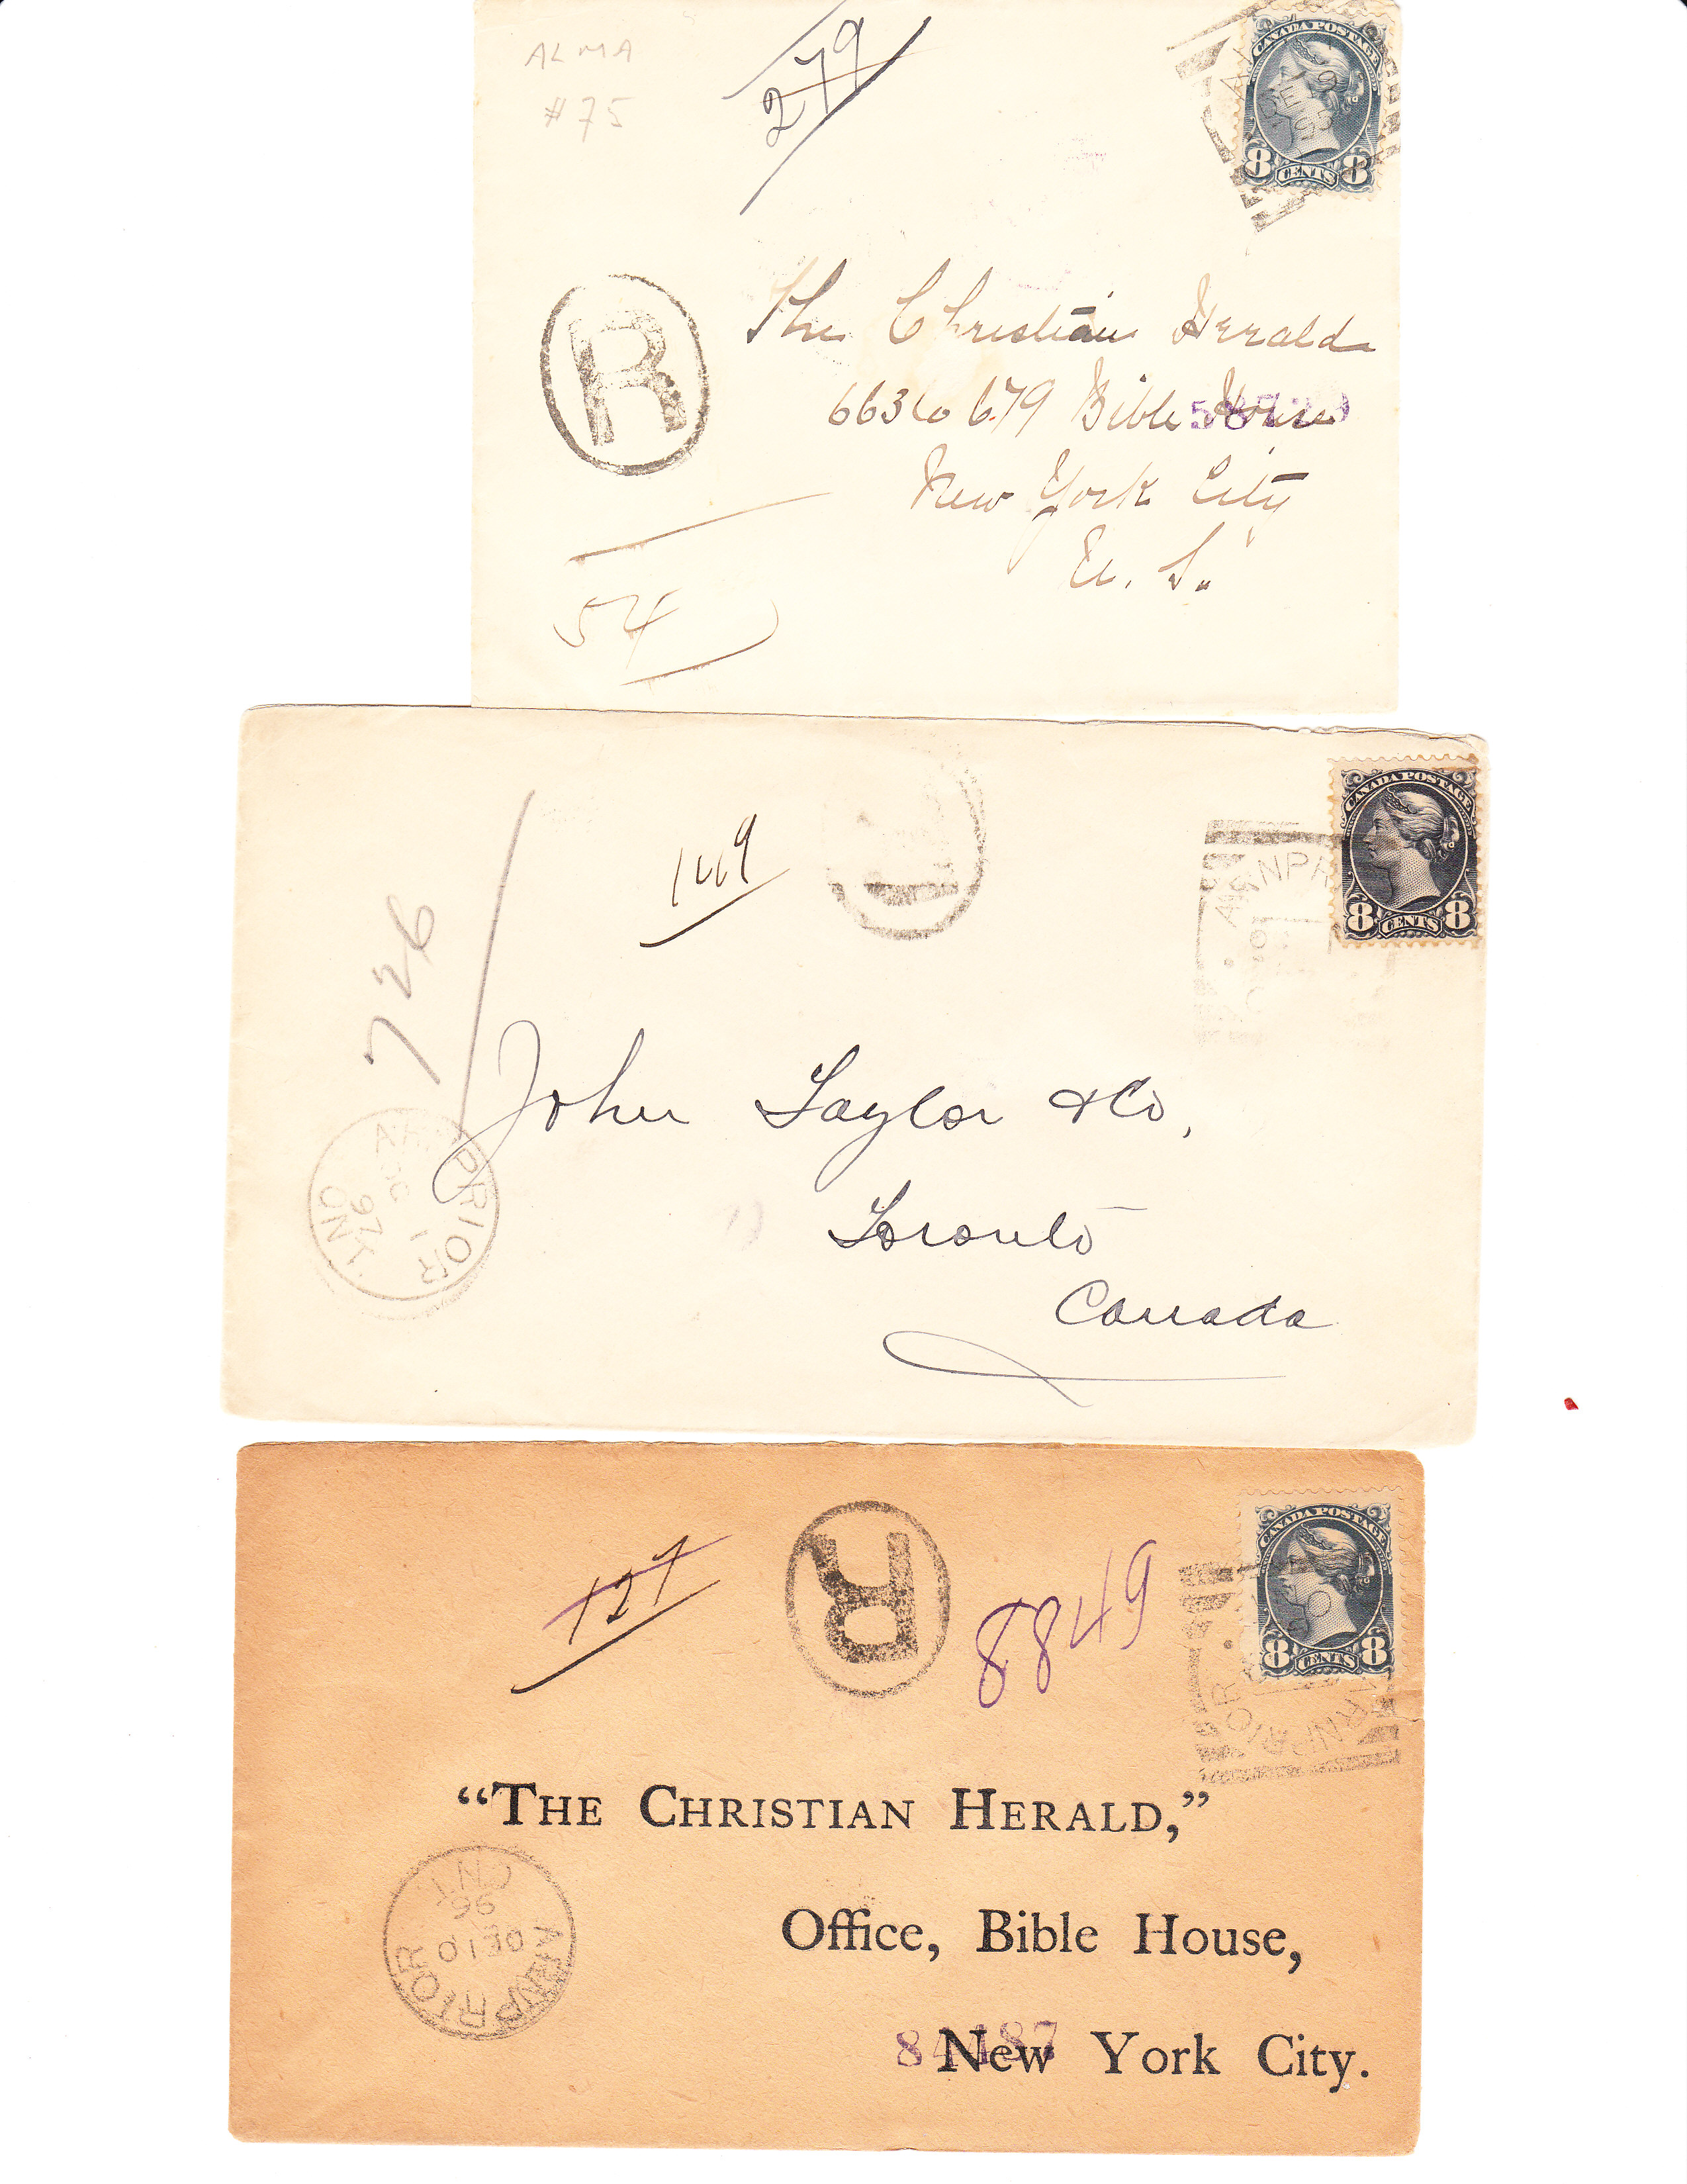 ALMA
#75
279
CANADA POSTAGE
8 CENTS 8
R
The Christian Herald
663 to 679 Bible House
New York City
U. S.
54
CANADA POSTAGE
8 CENTS 8
ARNPR
1449
726
John Taylor & Co,
Toronto
Canada
ARNPRIOR
1
97
ONT.
CANADA POSTAGE
8 CENTS 8
ARNPRIOR
127
R
8849
"THE CHRISTIAN HERALD,"
Office, Bible House,
84487
New York City.
ARNPRIOR
DE 10
96
ONT.